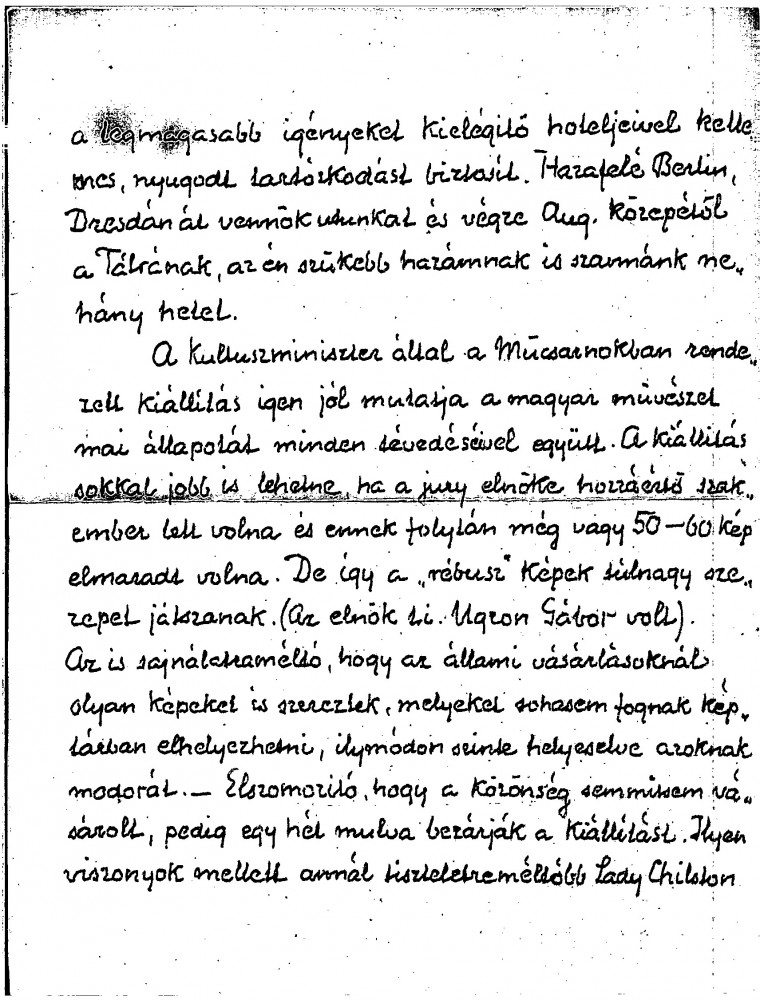 a legmagasabb igényeket kielégitő hoteljeivel kelle
mes, nyugodt tartózkodást biztosit. Hazafelé Berlin,
Dresdán át vennők utunkat és végre Aug. közepétől
a Tátrának, az én szűkebb hazámnak is szannánk ne„
hány hetet.
A Kultuszminiszter által a Műcsarnokban rende„
zett kiállitás igen jól mutatja a magyar művészet
mai állapotát minden tévedéseivel együtt. A kiállitás
sokkal jobb is lehetne, ha a jury elnöke hozzáértő szak„
ember lett volna és ennek folytán még vagy 50–60 kép
elmaradt volna. De így a „rébusz" képek túlnagy sze„
repet játszanak. (Az elnök t.i. Ugron Gábor volt).
Az is sajnálatraméltó, hogy az állami vásárlásoknál
olyan képeket is szereztek, melyeket sohasem fognak kép„
tárban elhelyezhetni, ilymódon szinte helyeselve azoknak
modorát. — Elszomoritó, hogy a közönség semmitsem vá„
sárolt, pedig egy hét mulva bezárják a kiállitást. Ilyen
viszonyok mellett annál tiszteletreméltóbb Lady Chilston